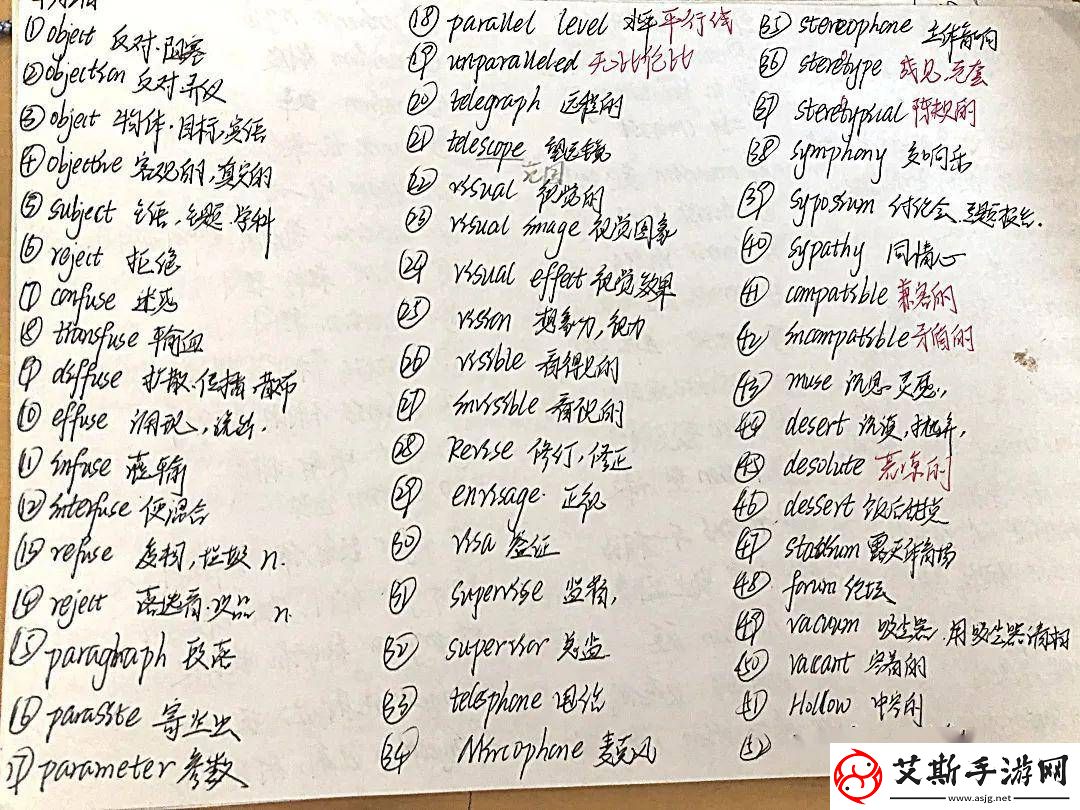 ① object 反对.阻塞
② objection 反对.异议
③ object 物体.目标,宾语
④ objective 客观的,真实的
⑤ subject 主语,主题.学科
⑥ reject 拒绝
⑦ confuse 迷惑
⑧ transfuse 输血
⑨ diffuse 扩散.传播.散布
⑩ effuse 涌现,流出.
⑪ infuse 灌输
⑫ interfuse 使混合
⑬ refuse 垃圾 n.
⑭ reject 落选者.次品 n.
⑮ paragraph 段落
⑯ parasite 寄生虫
⑰ parameter 参数
⑱ parallel level 水平 平行线
⑲ unparalleled 无比伦比
⑳ telegraph 远程的
㉑ telescope 望远镜
㉒ visual 视觉的
㉓ visual image 视觉图象
㉔ visual effect 视觉效果
㉕ vision 想象力,视力
㉖ visible 看得见的
㉗ invisible 看不见的
㉘ Revise 修订,修正
㉙ envisage. 正视
㉚ visa 签证
㉛ supervise 监督,
㉜ supervisor 总监
㉝ telephone 电话
㉞ Mircophone 麦克风
㉟ stereophone 立体音响
㊱ steretype 成见.
㊲ steretypical
㊳ symphony 交响乐
㊴ syposium 讨论会.专题报告.
㊵ sypathy 同情心
㊶ compatible 兼容的
㊷ incompatible 矛盾的
㊸ muse 沉思.灵感,
㊹ desert 沙漠,抛弃,
㊺ desolute 荒凉的
㊻ dessert 饭后甜点
㊼ stadium 露天体育场
㊽ forum 论坛
㊾ vacuum 吸尘器.用吸尘器清扫
㊿ vacant 空着的
51 Hollow 中空的
52
艾斯手游网
www.asjg.net